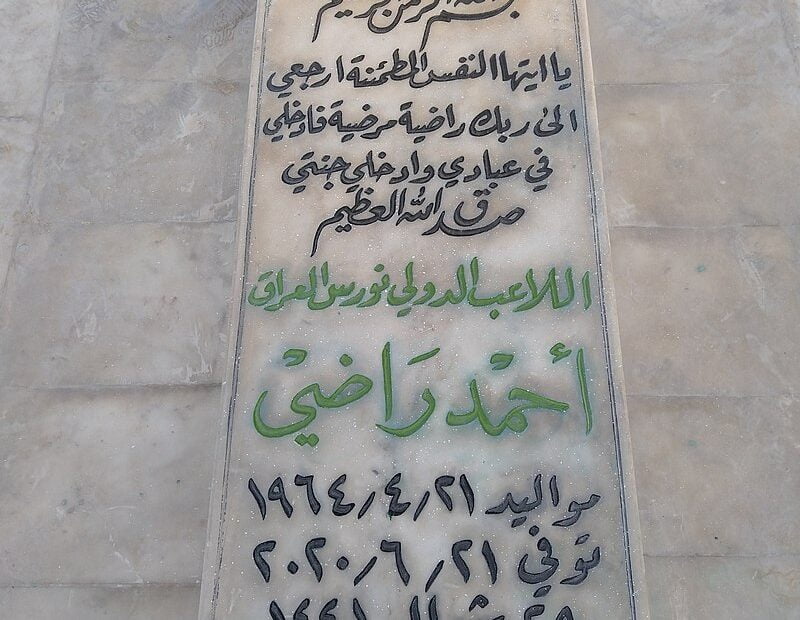 بسم الله الرحمن الرحيم
يا ايتها النفس المطمئنة ارجعي
الى ربك راضية مرضية فادخلي
في عبادي وادخلي جنتي
صدق الله العظيم
اللاعب الدولي نورس العراق
أحمْد رَاضيْ
مواليد ٢١/٤/١٩٦٤
توفي ٢١/٦/٢٠٢٠
٢٩ شوال ١٤٤١